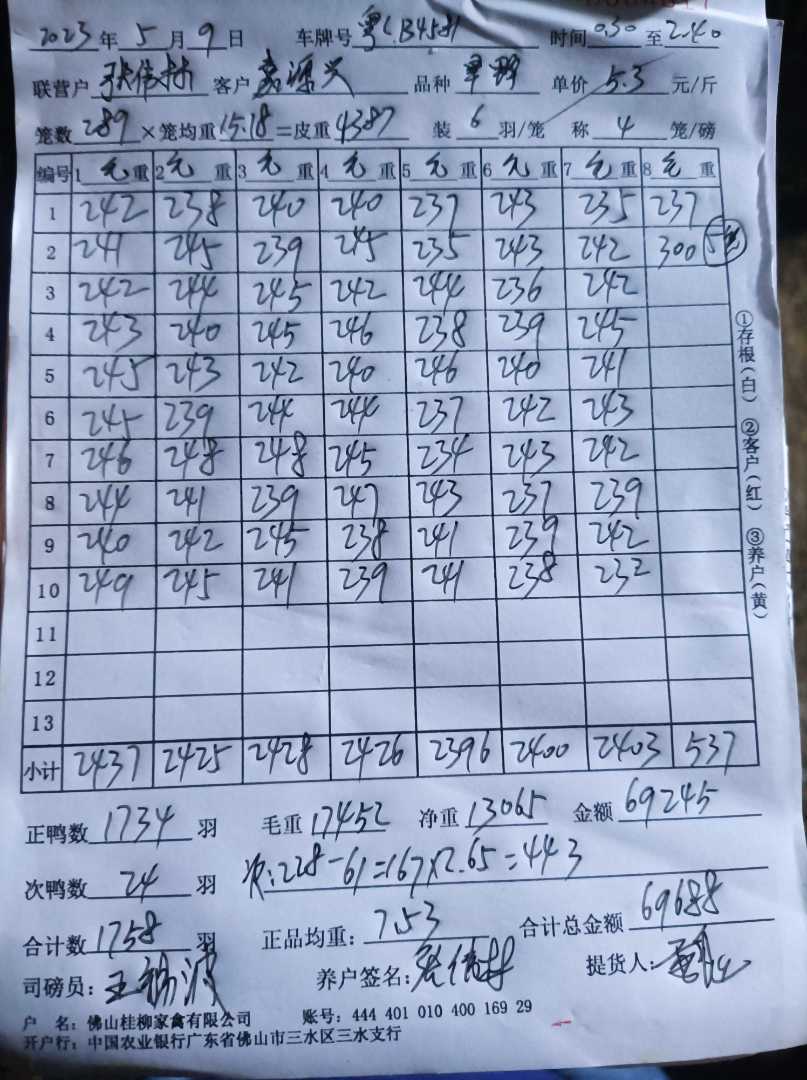 2023年5月9日 车牌号粤C 时间0.30至2.40
联营户张伟林 客户嘉源兴 品种 单价5.3元/斤
笼数289×笼均重15.18=皮重4387 装6羽/笼 称4笼/磅
编号 1毛重 2毛重 3毛重 4毛重 5毛重 6毛重 7毛重 8毛重
1 242 238 240 240 237 243 235 237
2 241 245 239 245 235 243 242 300
3 242 244 245 242 244 236 242
4 243 240 245 246 238 239 245
5 245 243 242 240 246 240 241
6 245 239 244 244 237 242 243
7 246 248 248 245 234 243 242
8 244 241 239 247 243 237 239
9 240 242 245 238 241 239 242
10 249 245 241 239 241 238 232
11
12
13
小计 2437 2425 2428 2426 2396 2400 2403 537
正鸭数1734羽 毛重17452 净重13065 金额69245
次鸭数24羽 次:228-61=167×2.65=443
合计数1758羽 正品均重:7.53 合计总金额69688
司磅员: 养户签名:张伟林 提货人:
户 名:佛山桂柳家禽有限公司 账号:444 401 010 400 169 29
开户行:中国农业银行广东省佛山市三水区三水支行
①存根(白) ②客户(红) ③养户(黄)